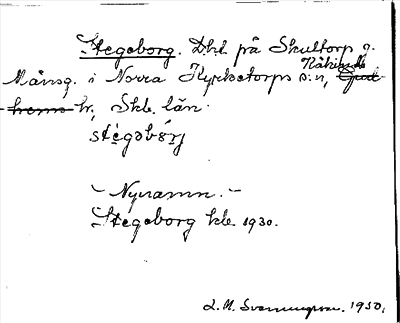 Stegeborg. Dhl på Skultorp o.
Månsg. i Norra Kyrketorps s:n, Kåkinds
hr, Skb. län.
stègəbórj
- Nynamn. -
Stegeborg kbr. 1930.
L. M. Svenungsson. 1950.